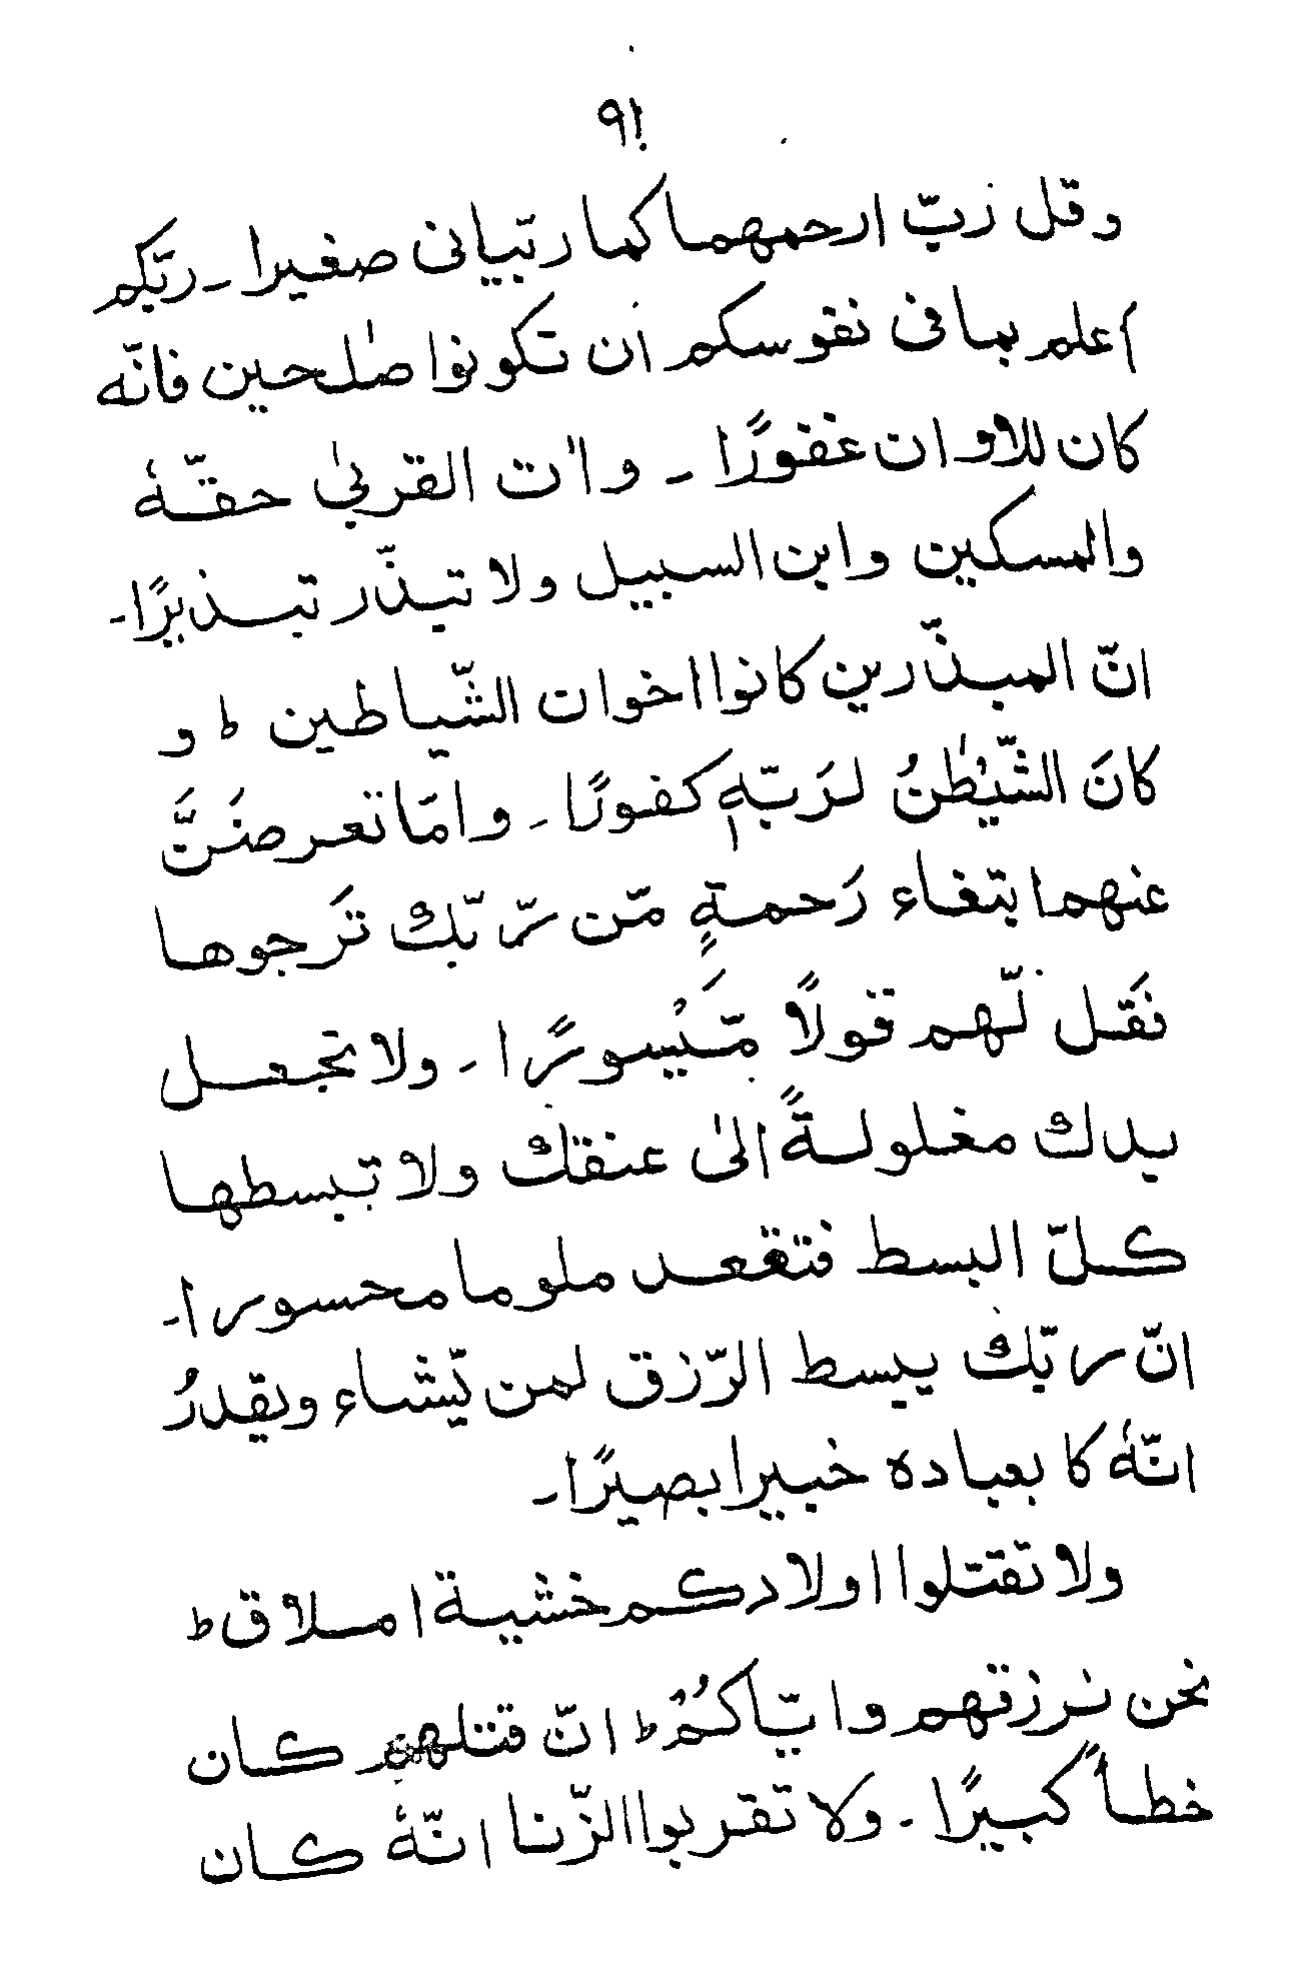 ٩١
وقل رّبّ ارحمهما كما ربّيانى صغيرا ۔ ربّكم
اعلم بما فى نفوسكم ان تكونوا صٰلحين فانّه
كان للاوان غفورًا ۔ واٰت القربىٰ حقّهٗ
والمسكين وابن السبيل ولا تبذّر تبذيرًا ۔
انّ المبذّرين كانوا اخوان الشّياطين ط و
كانَ الشّيْطٰنُ لرَبّهٖ كفورًا ۔ وامّا تعرضَنَّ
عنهما بتغاء رَحمةٍ مّن رّبّك تَرجوها
فَقل لّهم قولًا مَّيْسورًا ۔ ولا تجعل
يدك مغلولةً الىٰ عنقك ولا تبسطها
كلّ البسط فتقعد ملوما محسورا ۔
انّ ربّك يبسط الرّزق لمن يّشاء ويقدرُ
انّهٗ كا بعباده خبيرا بصيرًا ۔
ولا تقتلوا اولادكم خشية املاق ط
نحن نرزقهم وايّاكُمْ ط انّ قتلهم كان
خطأً كبيرًا ۔ ولا تقربوا الزّنا انّهٗ كان